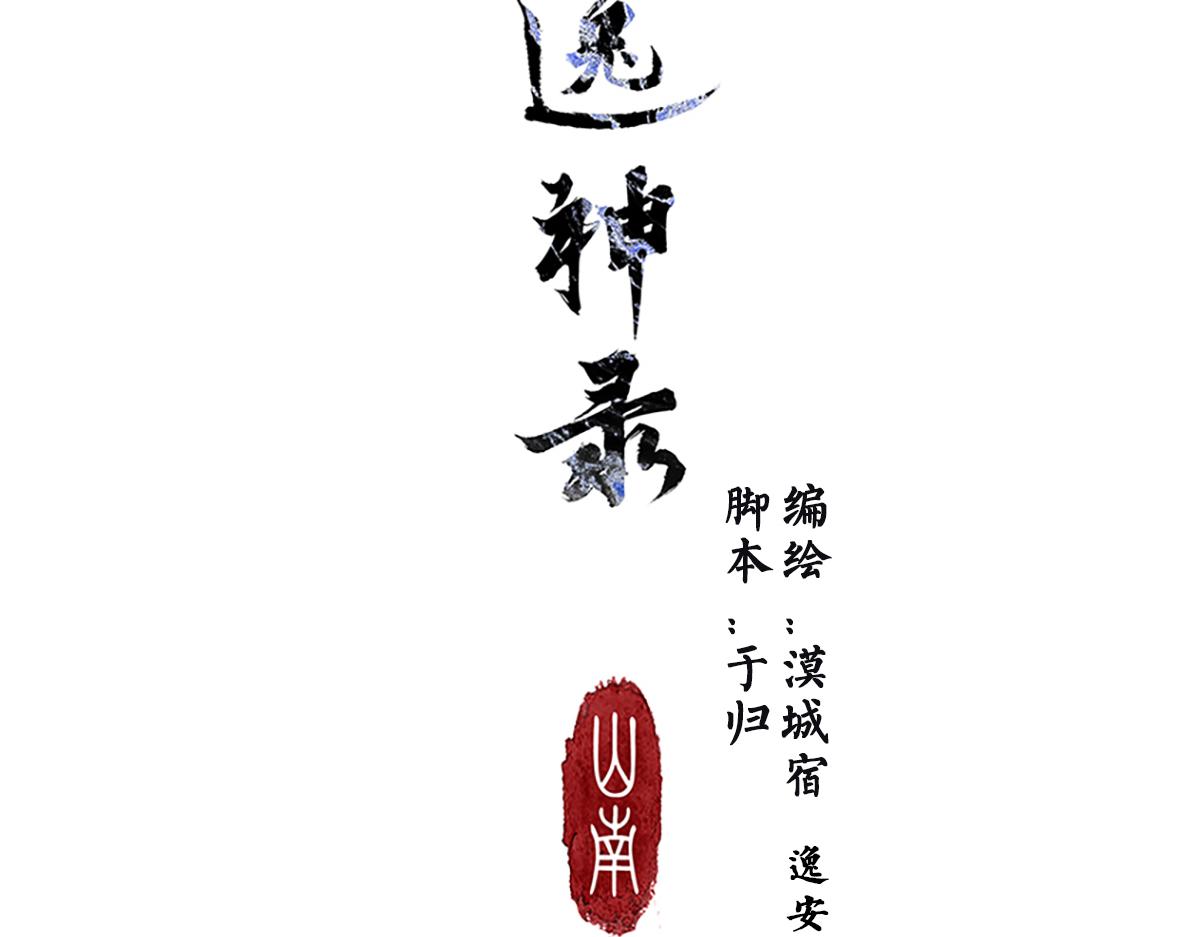 逸神录
编绘：漠城宿 逸安
脚本：于归
山南